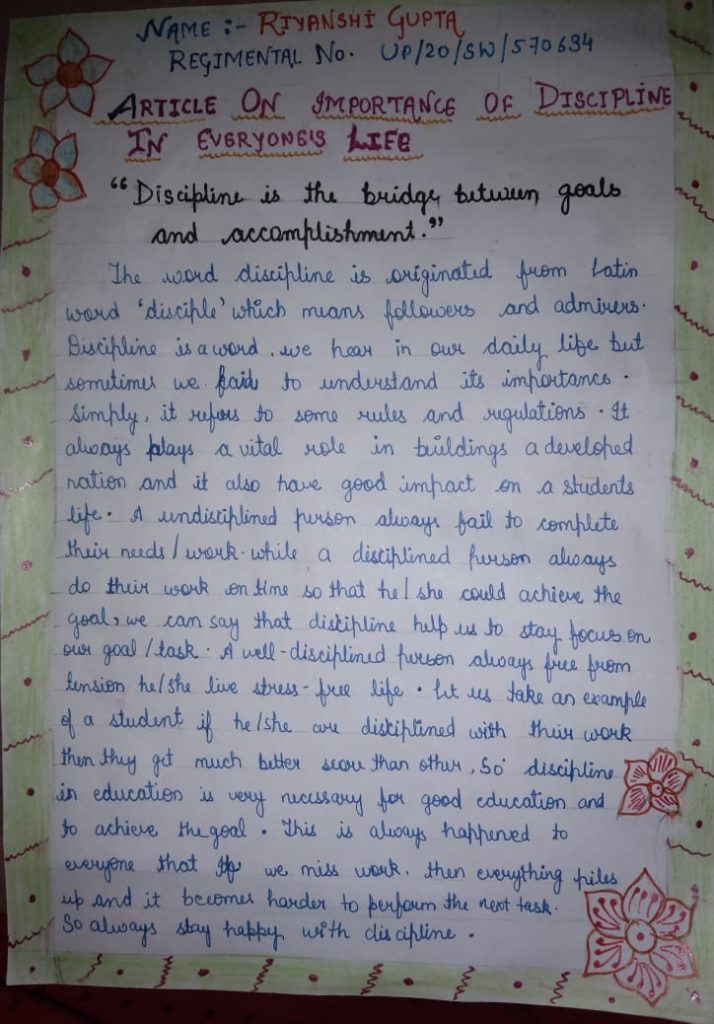 NAME :- RIYANSHI GUPTA
REGIMENTAL NO. UP/20/SW/570634
ARTICLE ON IMPORTANCE OF DISCIPLINE
IN EVERYONE'S LIFE
“Discipline is the bridge between goals
and accomplishment.”
The word discipline is originated from Latin
word ‘disciple’ which means followers and admirers.
Discipline is a word, we hear in our daily life but
sometimes we fail to understand its importance.
Simply, it refers to some rules and regulations. It
always plays a vital role in buildings a developed
nation and it also have good impact on a students
life. A undisciplined person always fail to complete
their needs/work. while a disciplined person always
do their work on time so that he/she could achieve the
goal, we can say that discipline help us to stay focus on
our goal/task. A well-disciplined person always free from
tension he/she live stress-free life. Let us take an example
of a student if he/she are disciplined with their work
then they get much better score than other, So discipline
in education is very necessary for good education and
to achieve the goal. This is always happened to
everyone that If we miss work. then everything piles
up and it becomes harder to perform the next task.
So always stay happy with discipline.